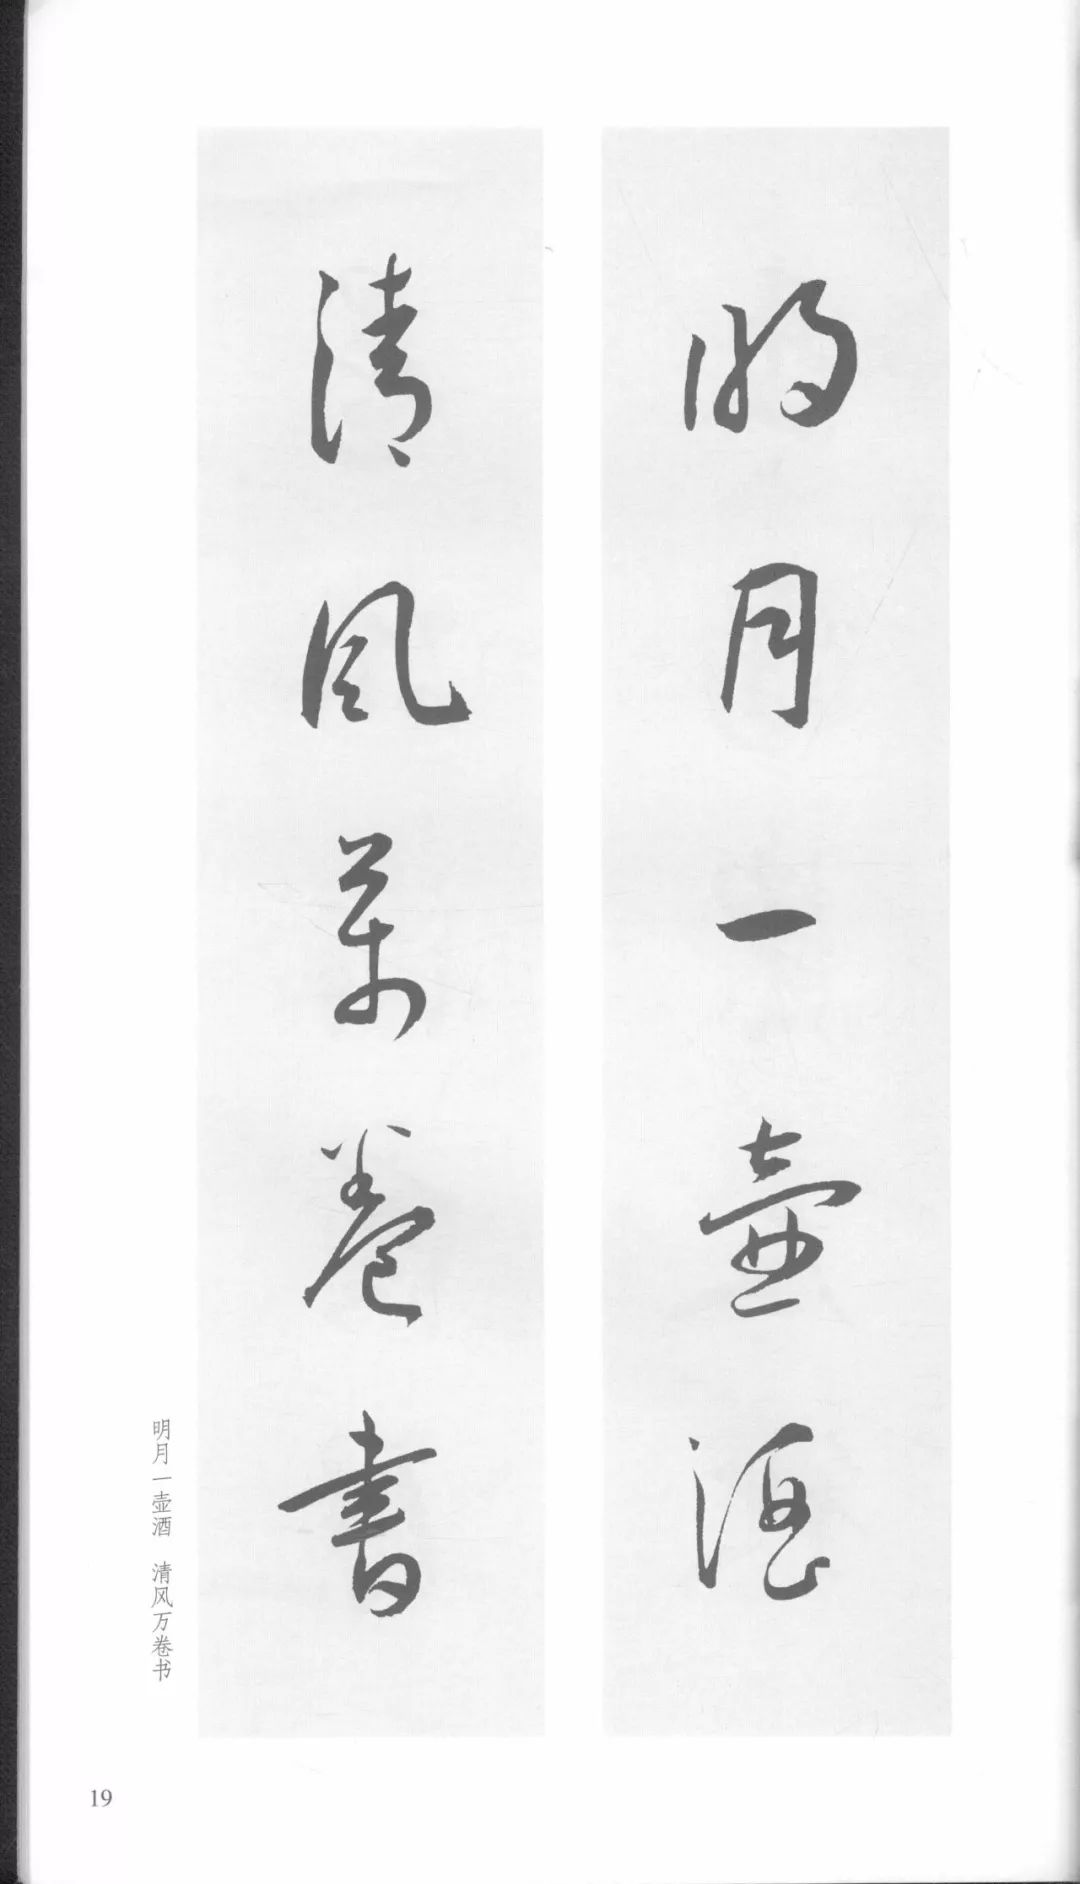 明月一壶酒
清风萬卷書
明月一壶酒 清风万卷书
19